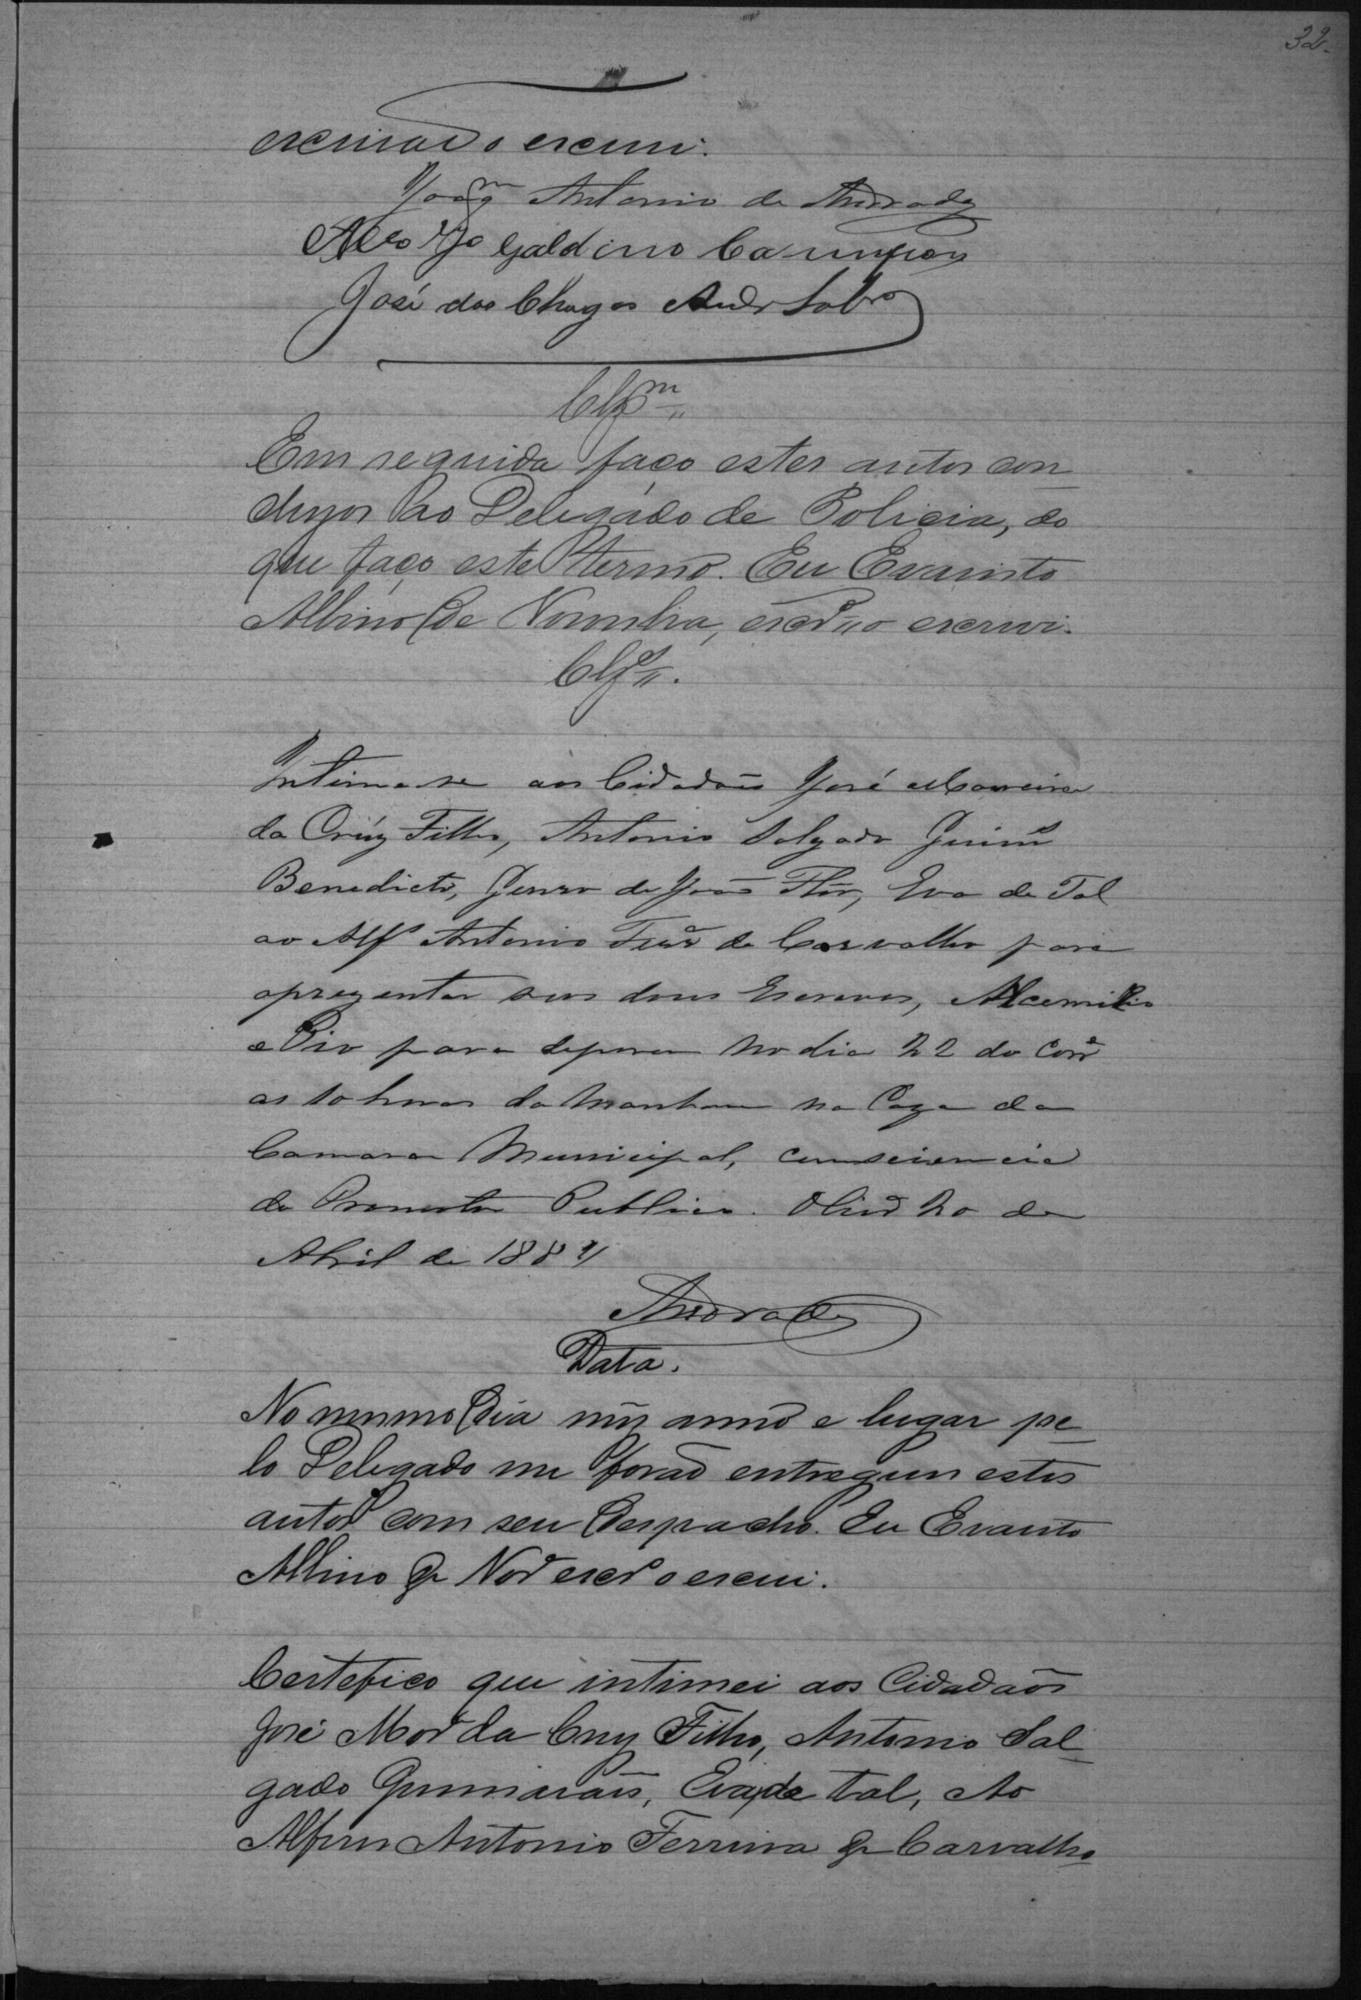 32.
escrivão o escrevi.
Joaqm Antonio de Andrade
Galdino
José das Chagas Andr Sobro
Clsm
Em seguida faço estes autos con
cluzos ao Delegado de Policia, do
que faço este termo. Eu Evaristo
Albino de Noronha, escrvão o escrevi.
Clsos.
Intime-se aos Cidadãos José Moreira
da Crúz Filho, Antonio Salgado Guims
Benedicto, Genro de João Flôr, Eva de Tal
ao Alfs Antonio Ferra de Carvalho para
aprezentar seus dous Escravos,
e Pio para depor no dia 22 do Corre
as 10 horas da manham na Caza da
Camara Municipal, com sciencia
do Promotor Publico. 20 de
Abril de 1884
Andrade
Data.
No mesmo dia mes anno e lugar pe-
lo Delegado me forão entregues estes
autos com seu despacho. Eu Evaristo
Albino de Nora escrvo o escrevi.
Certefico que intimei aos Cidadãos
José Mora da Cruz Filho, Antonio Sal-
gado Guimarães, Eva de tal, Ao
Alferes Antonio Ferreira de Carvalho